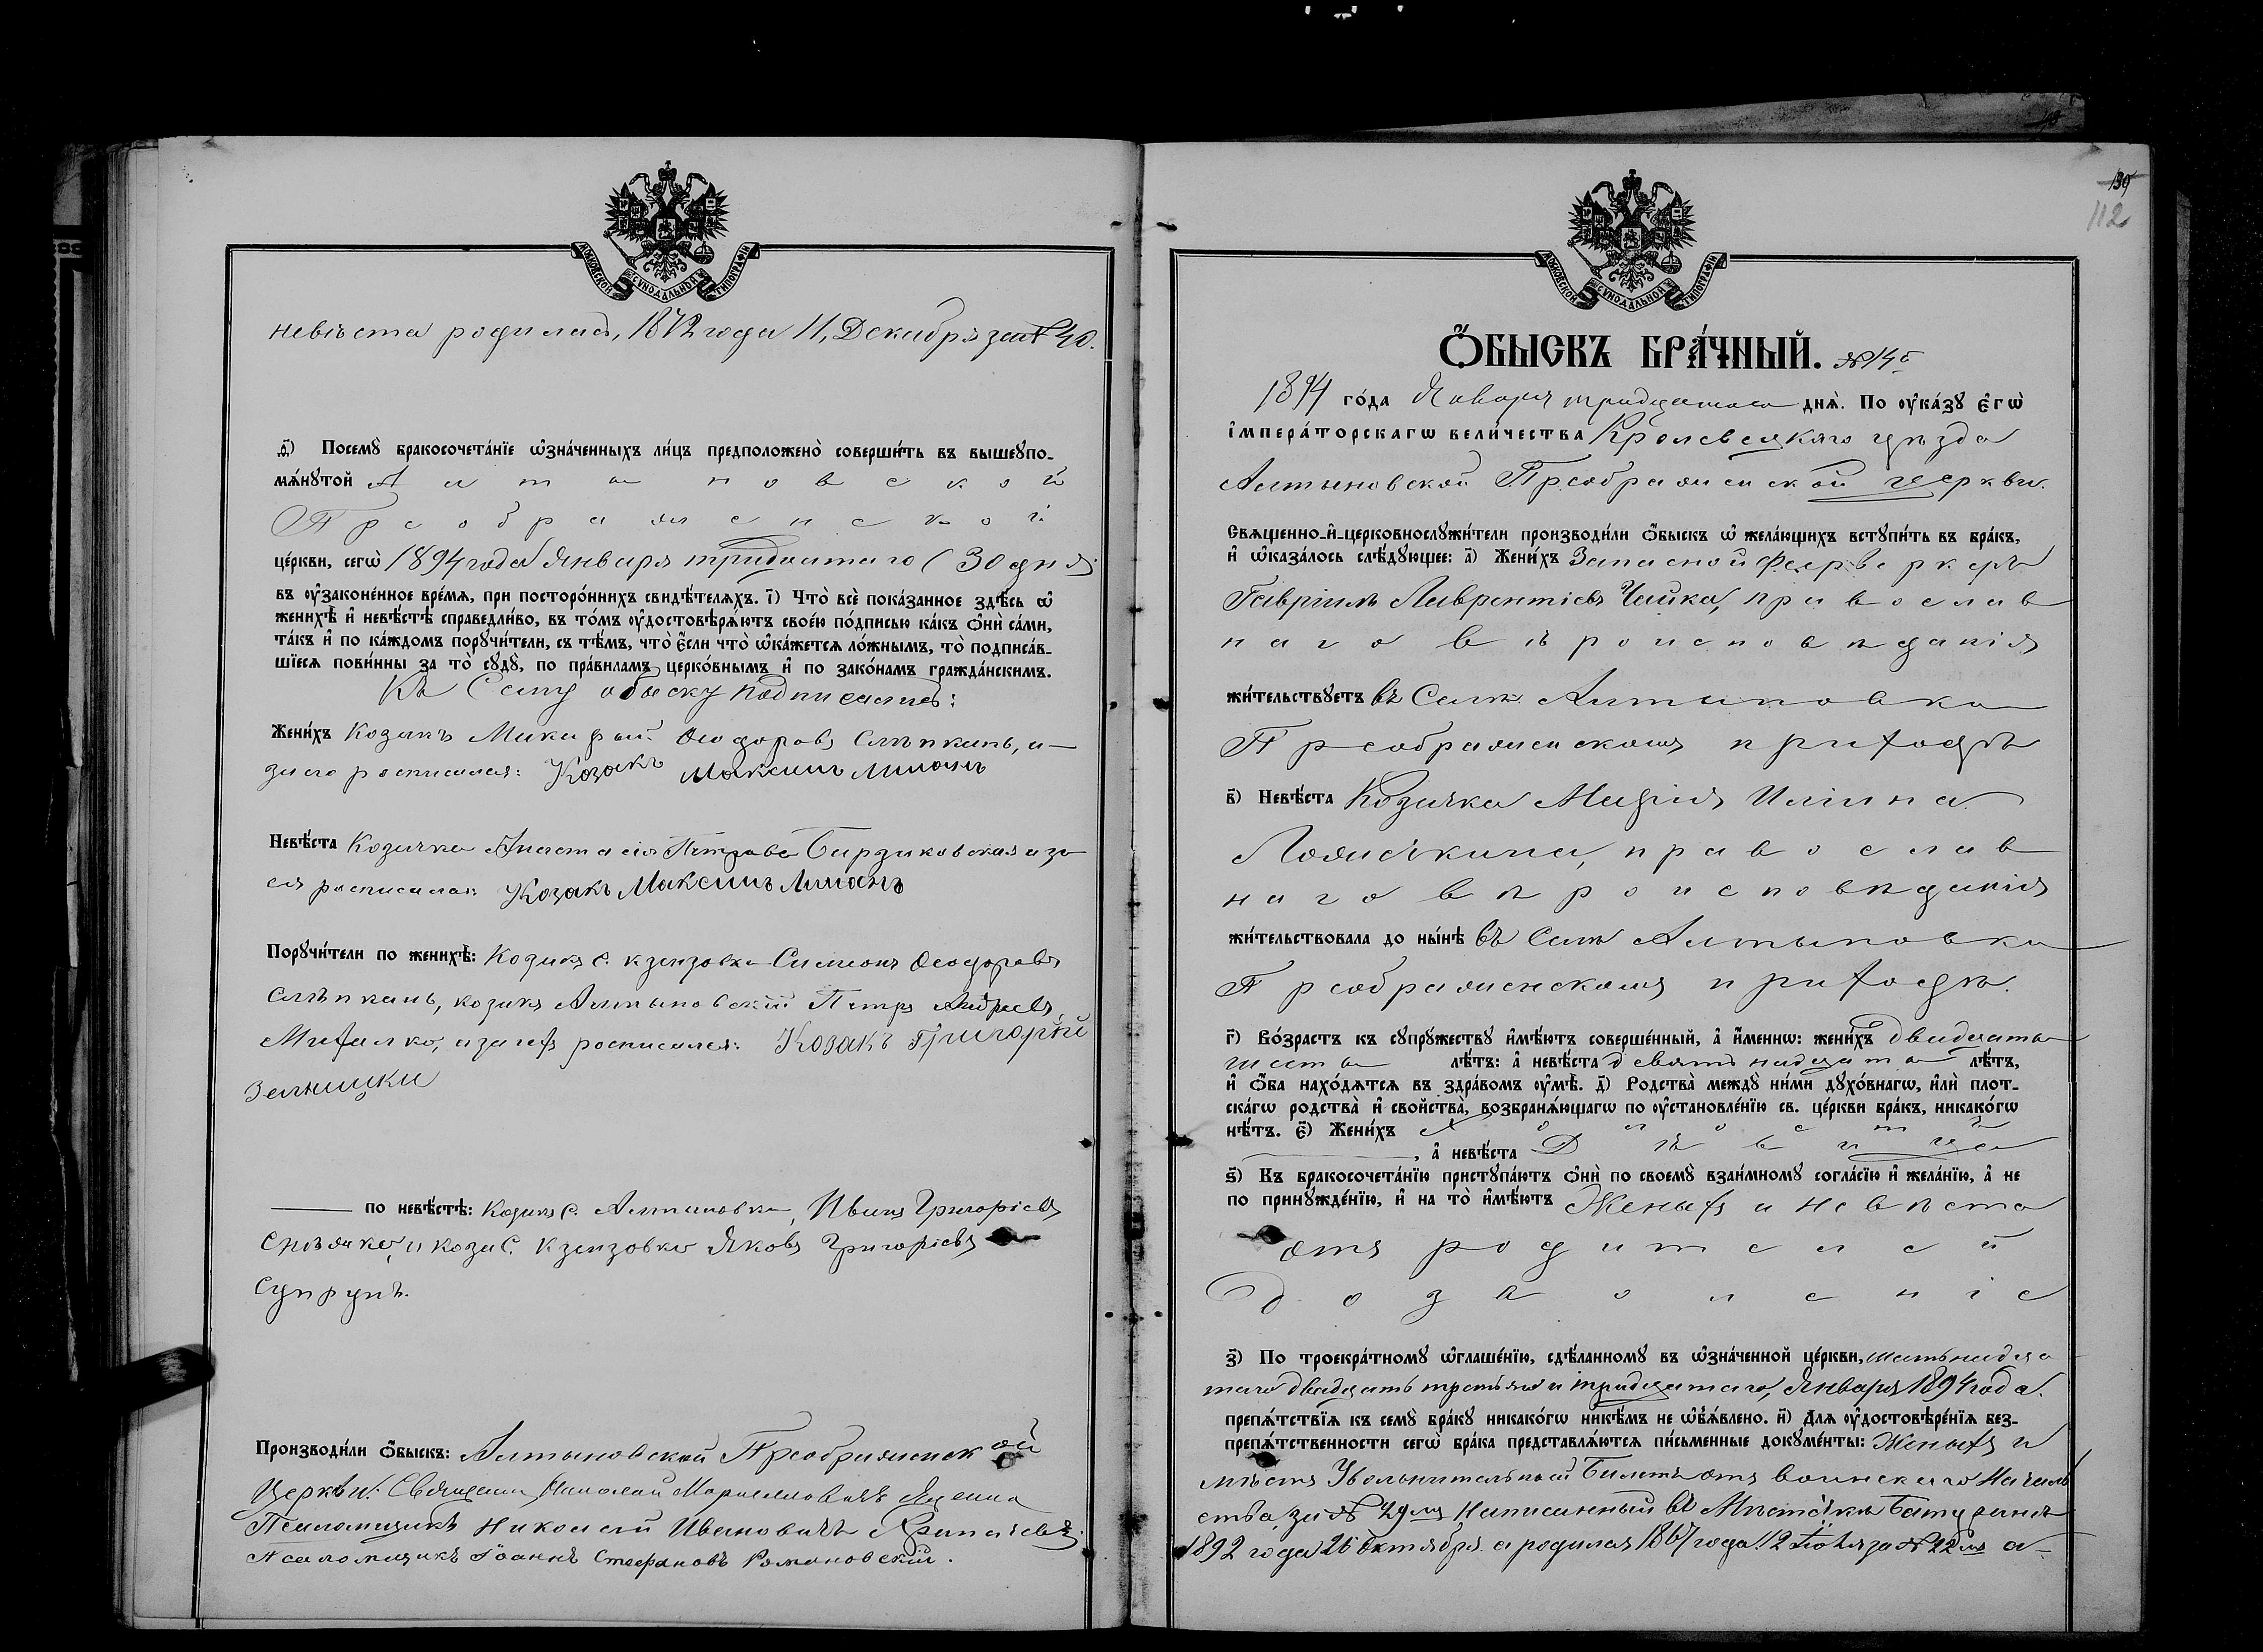 МОСКОВСКОЙ СѴНОДАЛЬНОЙ ТИПОГРАФІИ
невѣста родилась, 1872 года 11, Декабря за № 40.
д҃і) Посемꙋ̀ бракосочета́нїе ѡ҆зна́ченныхъ ли́цъ предположено̀ соверши́ть въ вышеꙋпо-
мѧ́нꙋтой Алтыновской
Преображенской
це́ркви, сегѡ̀ 1894 года Января тридцатаго (30 дня)
въ ᲂу҆законе́нное вре́мѧ, при посторо́ннихъ свидѣ́телѧхъ. і҃) Что̀ всѐ пока́занное здѣ́сь ѡ҆
женихѣ̀ и҆ невѣ́стѣ справедли́во, въ то́мъ ᲂу҆достовѣрѧ́ютъ свое́ю по́дписью ка́къ ѻ҆нѝ са́ми,
та́къ и҆ по ка́ждомъ порꙋчи́тели, съ тѣ́мъ, что̀ є҆́сли что̀ ѡ҆ка́жетсѧ ло́жнымъ, то̀ подписа́в-
шїесѧ пови́нны за то̀ сꙋдꙋ̀, по пра́виламъ церко́внымъ и҆ по зако́намъ гражда́нскимъ.
Къ Сему обыску подписались:
Жени́хъ Козакъ Никифоръ Ѳеодоровъ Слѣпкань, а-
за него росписался: Козакъ Максимъ Лиманъ
Невѣ́ста Козачка Анастасія Петрова а за
ея росписался: Козакъ Максимъ Лиманъ
Порꙋчи́тели по женихѣ̀: Козакъ с. Симеонъ Ѳеодоровъ
Слѣпкань, козакъ Алтыновскій Петръ Андреевъ
Михалко, а за нихъ росписался: Козакъ Григорій
по невѣ́стѣ: Козакъ с. Алтыновка, Иванъ Григоріевъ
и коза С. Яковъ Григоріевъ
Супрунъ.
Производи́ли ѻ҆́быскъ: Алтыновской Преображенской
Церкви: Священ Николай
Псаломщикъ Николай Ивановичъ
Псаломщикъ Іоаннъ Стефановъ Романовскій.
139
112
МОСКОВСКОЙ СѴНОДАЛЬНОЙ ТИПОГРАФІИ
Ѻ҆́БЫСКЪ БРА́ЧНЫЙ. № 14й
1894 го́да Января тридцатаго днѧ̀. По ᲂу҆ка́зꙋ є҆гѡ̀
і҆мпера́торскагѡ вели́чества Кролевецкаго уѣзда
Алтыновской Преображенской церкви.
Свѧщенно-и҆-церковнослꙋжи́тели производи́ли ѻ҆́быскъ ѡ҆ жела́ющихъ встꙋпи́ть въ бра́къ,
и҆ ѡ҆каза́лось слѣ́дꙋющее: а҃) Жени́хъ Запасной Феерверкеръ
Гавріилъ Лаврентіевъ Чайка, православ
наго вѣроисповѣданія
жи́тельствꙋетъ въ Селѣ Алтыновка
Преображенскомъ приходѣ
в҃) Невѣ́ста Козачка Марія Иліина
православ
наго вѣроисповѣданія
жи́тельствовала до ны́нѣ въ Селѣ Алтыновка
Преображенскомъ приходѣ.
г҃) Во́зрастъ къ сꙋпрꙋ́жествꙋ и҆мѣ́ютъ соверше́нный, а҆ и҆́меннѡ: жени́хъ двадцать
шесть лѣ́тъ: а҆ невѣ́ста девятнадцать лѣ́тъ,
и҆ ѻ҆́ба нахо́дѧтсѧ въ здра́вомъ ᲂу҆мѣ̀. д҃) Родства̀ междꙋ̀ ни́ми дꙋхо́внагѡ, и҆лѝ плот-
ска́гѡ родства̀ и҆ сво́йства̀, возбранѧ́ющагѡ по ᲂу҆становле́нїю св. це́ркви бра́къ, никако́гѡ
нѣ́тъ. є҃) Жени́хъ Холостъ
, а҆ невѣ́ста Дѣвица
ѕ҃) Къ бракосочета́нїю пристꙋпа́ютъ ѻ҆нѝ по своемꙋ̀ взаи́мномꙋ согла́сїю и҆ жела́нїю, а҆ не
по принꙋжде́нїю, и҆ на то̀ и҆мѣ́ютъ Женихъ и невѣста
отъ родителей
дозволеніе
з҃) По троекра́тномꙋ ѡ҆глаше́нїю, сдѣ́ланномꙋ въ ѡ҆зна́ченной це́ркви, шестнадца
таго двадцать третьяго и тридцатаго, Января 1894 года.
препѧ́тствїѧ къ семꙋ̀ бра́кꙋ никако́гѡ никѣ́мъ не ѡ҆б̾ѧ́влено. и҃) Длѧ ᲂу҆достовѣре́нїѧ без-
препѧ́тственности сегѡ̀ бра́ка представлѧ́ютсѧ пи́сьменные докꙋме́нты: Женихъ и
мѣетъ Увольнительный Билетъ отъ воинскаго Началь
ства, за № 49мъ Написанный въ Мѣстечкѣ Батуринѣ
1892 года 26 Октября. а родился 1867 года 12 Іюля за № 22мъ а-